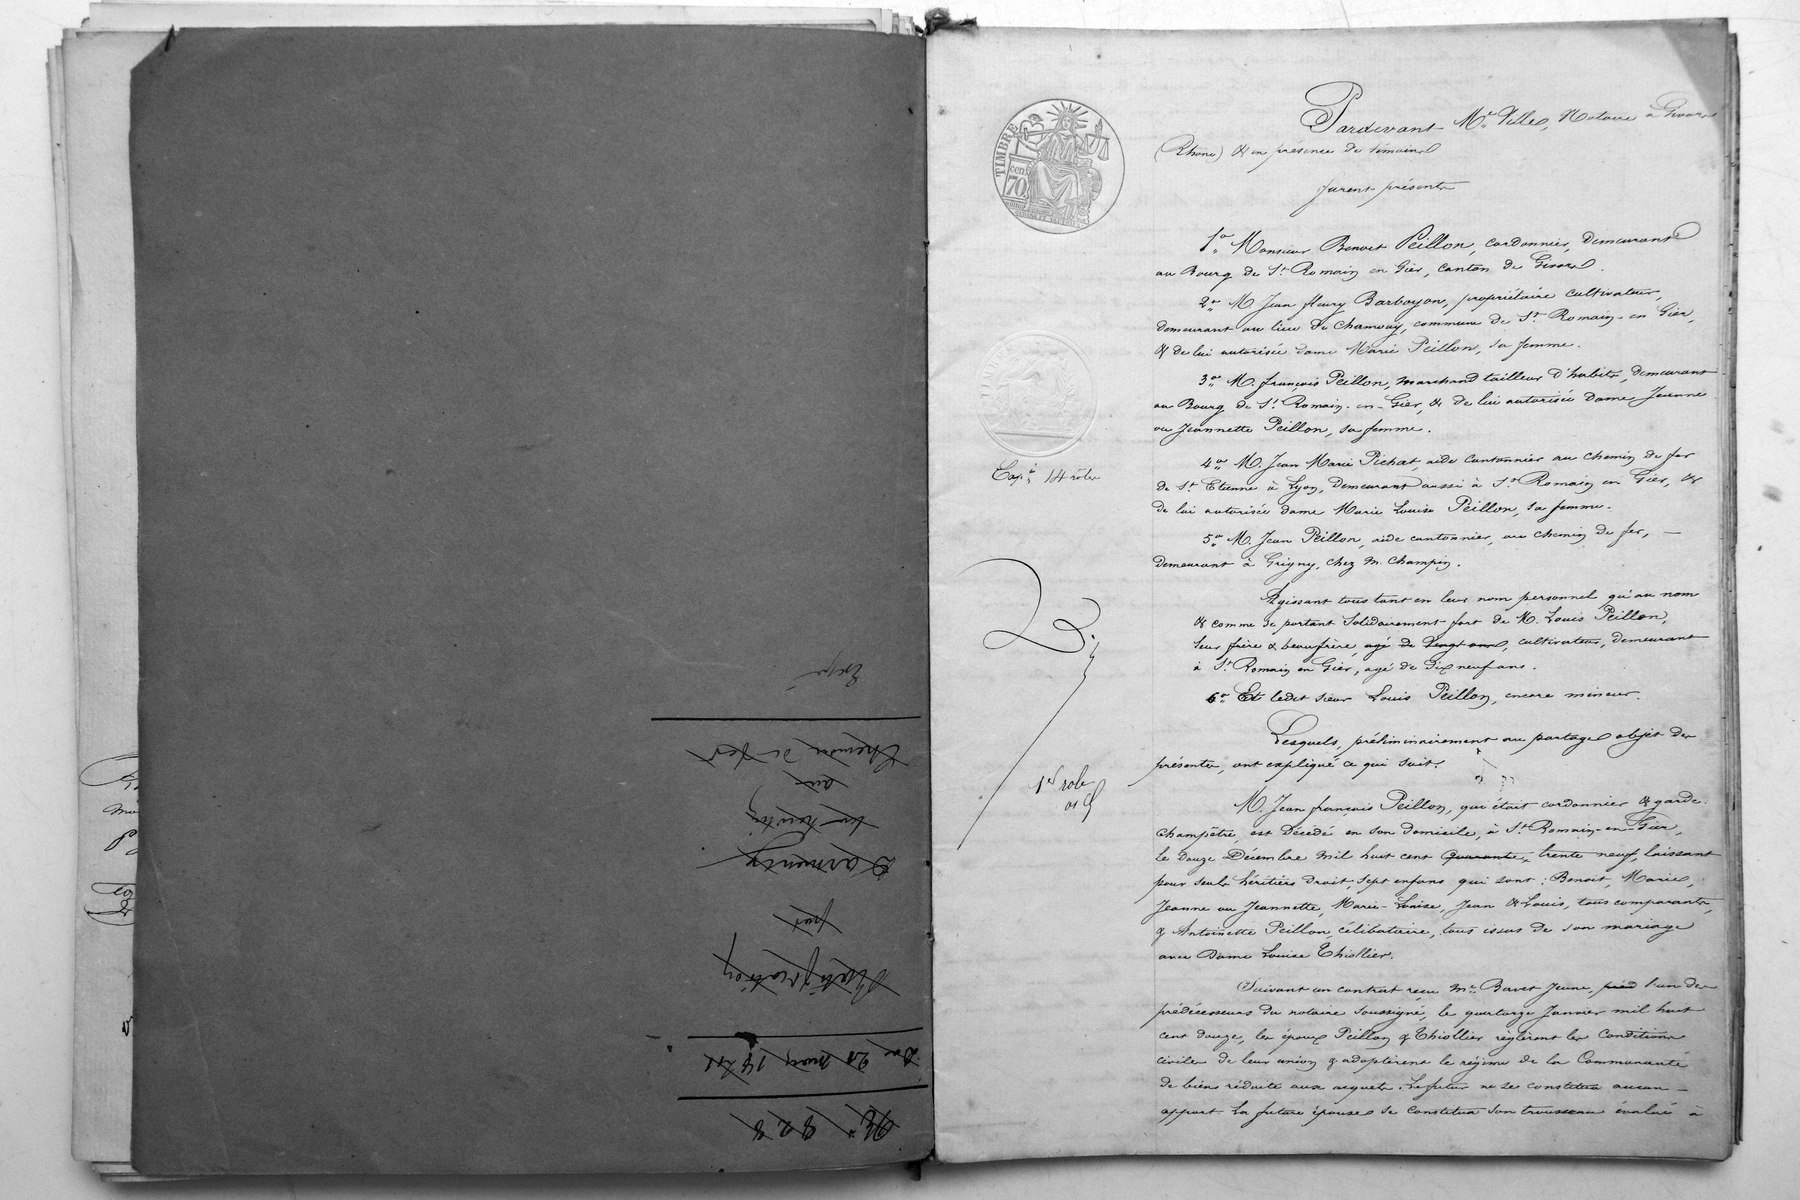 Pardevant Me Ville, Notaire à Givors
(Rhône) & en présence de témoins
furent présents
1o Monsieur Benoit Peillon, cordonnier, demeurant
au Bourg de St Romain en Gier, canton de Givors.
2o M. Jean fleury Barboyon, propriétaire cultivateur,
demeurant au lieu de Chamvay, commune de St Romain-en Gier,
& de lui autorisée dame Marie Peillon, sa femme.
3o M. françois Peillon, marchand tailleur d'habits, demeurant
au Bourg de St Romain-en-Gier, & de lui autorisée Dame Jeanne
ou Jeannette Peillon, sa femme.
4o M. Jean Marie Pichat, aide cantonnier au chemin de fer
de St Etienne à Lyon, Demeurant aussi à St Romain en Gier, &
de lui autorisée dame Marie Louise Peillon, sa femme.
5o M. Jean Peillon, aide cantonnier, au chemin de fer, —
demeurant à Grigny, chez M. Champin.
Agissant tous tant en leur nom personnel qu'au nom
& comme se portant solidairement fort de M. Louis Peillon,
leur frère & beaufrère, agé de vingt ans, cultivateur, demeurant
à St Romain en Gier, agé de dix neuf ans.
6o Et ledit sieur Louis Peillon, encore mineur.
Lesquels, préliminairement au partage objet des
présentes, ont expliqué ce qui suit:
M. Jean françois Peillon, qui était cordonnier & garde
champêtre, est décédé en son domicile, à St Romain-en-Gier,
le douze Décembre mil huit cent quarante, trente neuf, laissant
pour seuls héritiers droit, sept enfans qui sont: Benoit, Marie,
Jeanne ou Jeannette, Marie-Louise, Jean & Louis, tous comparants,
& Antoinette Peillon, célibataire, tous issus de son mariage
avec Dame Louise Thiollier.
Suivant un contrat reçu Me Bavet Jeune, préd l'un des
prédécesseurs du notaire soussigné, le quatorze Janvier mil huit
cent douze, les époux Peillon & Thiollier réglèrent les conditions
civiles de leur union & adoptèrent le régime de la Communauté
de biens réduite aux acquêts. Le futur ne se constitua aucun —
apport. La future épouse se constitua son trousseau évalué à
TIMBRE
cent
70
Expé 14 rôles
1er role
Expé
Chemin de fer
au
par
Ratification
No 828